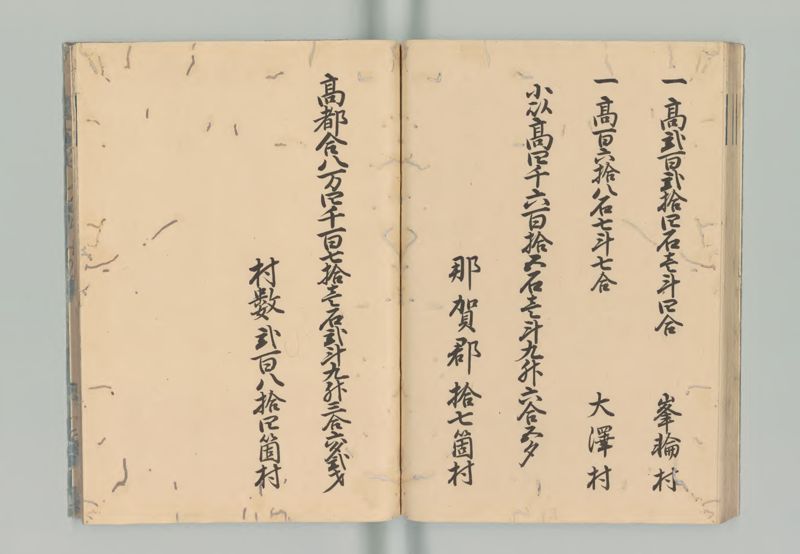 一高弐百弐拾四石壱斗四合 峯輪村
一高百六拾八石七斗七合 大澤村
小以高四千六百拾五石壱斗九升六合五夕
那賀郡拾七箇村
高都合八万四千百七拾壱石弐斗九升三合六夕弐才
村数弐百八拾四箇村